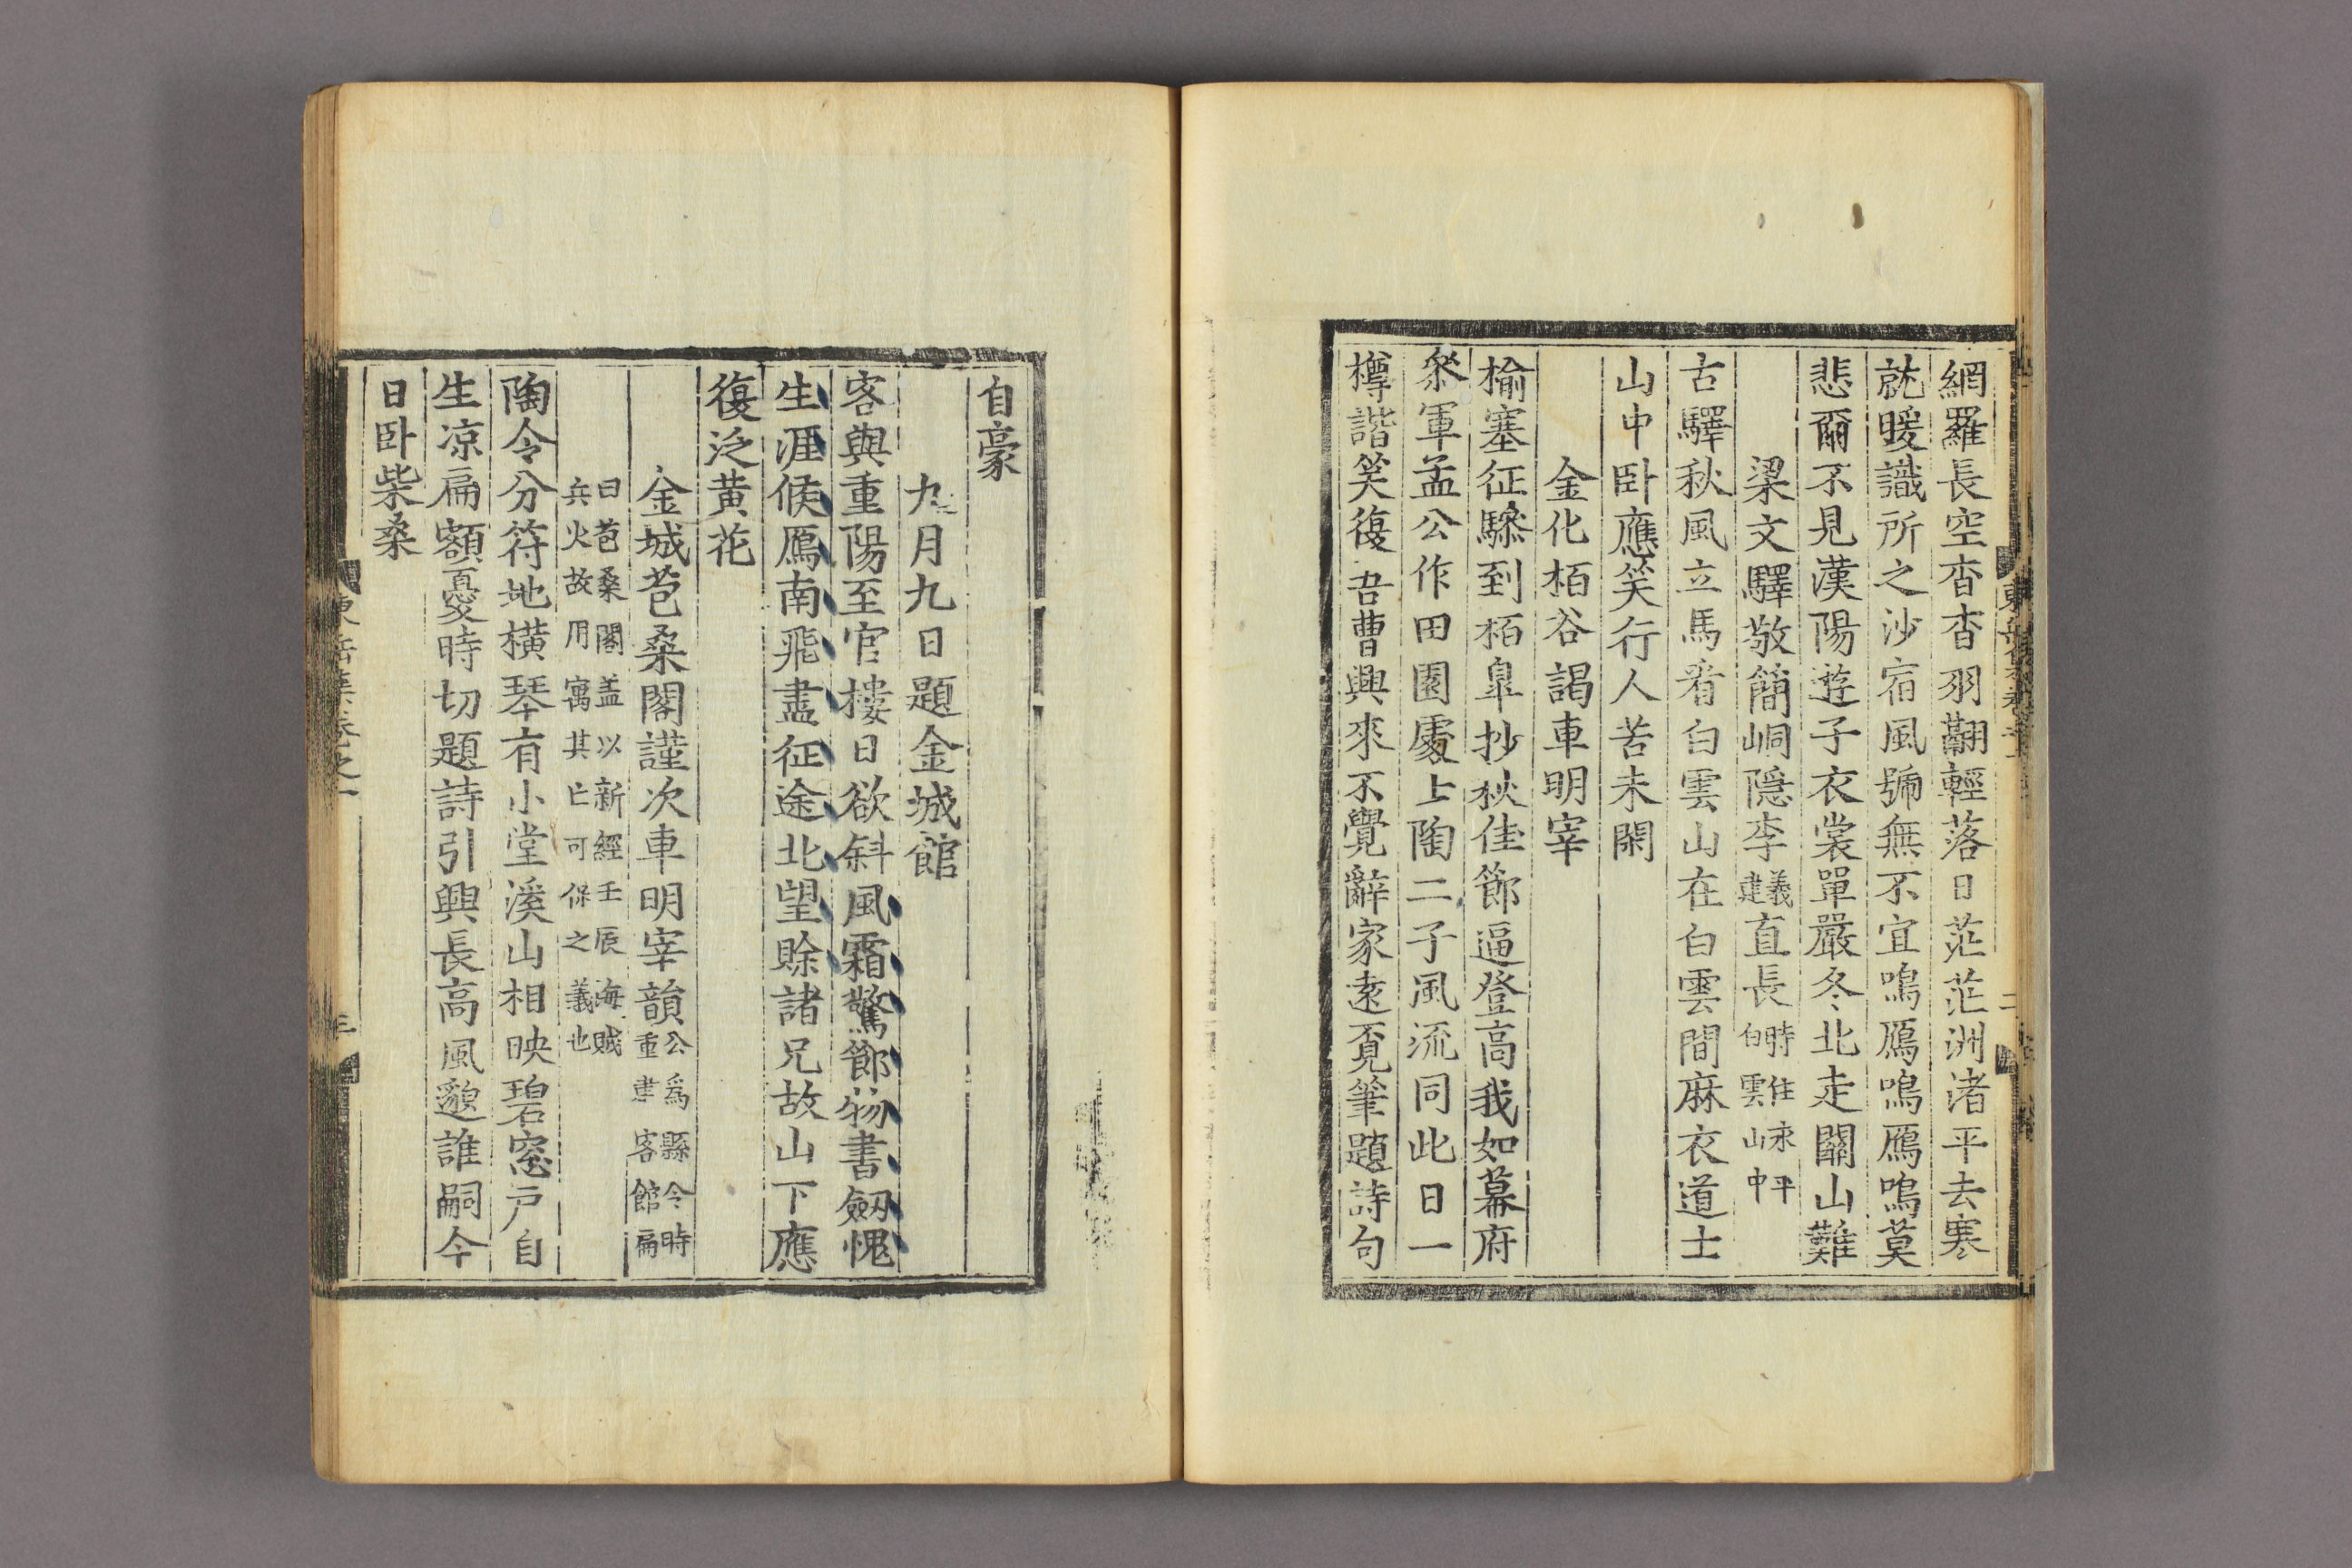 網羅長空杳杳羽翮輕落日茫茫洲渚平去寒
就暖識所之沙宿風號無不宜嗚鴈嗚鴈嗚莫
悲爾不見漢陽遊子衣裳單嚴冬北走關山難
梁文驛敬簡峒隱李義建直長時住永平白雲山中
古驛秋風立馬看白雲山在白雲間麻衣道士
山中卧應笑行人苦未閑
金化栢谷謁車明宰
榆塞征驂到栢皐抄秋佳節逼登高我如幕府
叅軍孟公作田園處士陶二子風流同此日一
樽諧笑復吾曹興來不覺辭家遠覔筆題詩句
自豪
九月九日題金城館
客與重陽至官樓日欲斜風霜驚節物書劒愧
生涯候鴈南飛盡征途北望賒諸兄故山下應
復泛黄花
金城苞桑閣謹次車明宰韻公爲縣令時重建客館扁
曰苞桑閣盖以新經壬辰海賊兵火故用寓其亡可保之義也
陶令分符地橫琴有小堂溪山相映碧窓戶自
生凉扁額憂時切題詩引興長高風邈誰嗣今
日卧柴桑